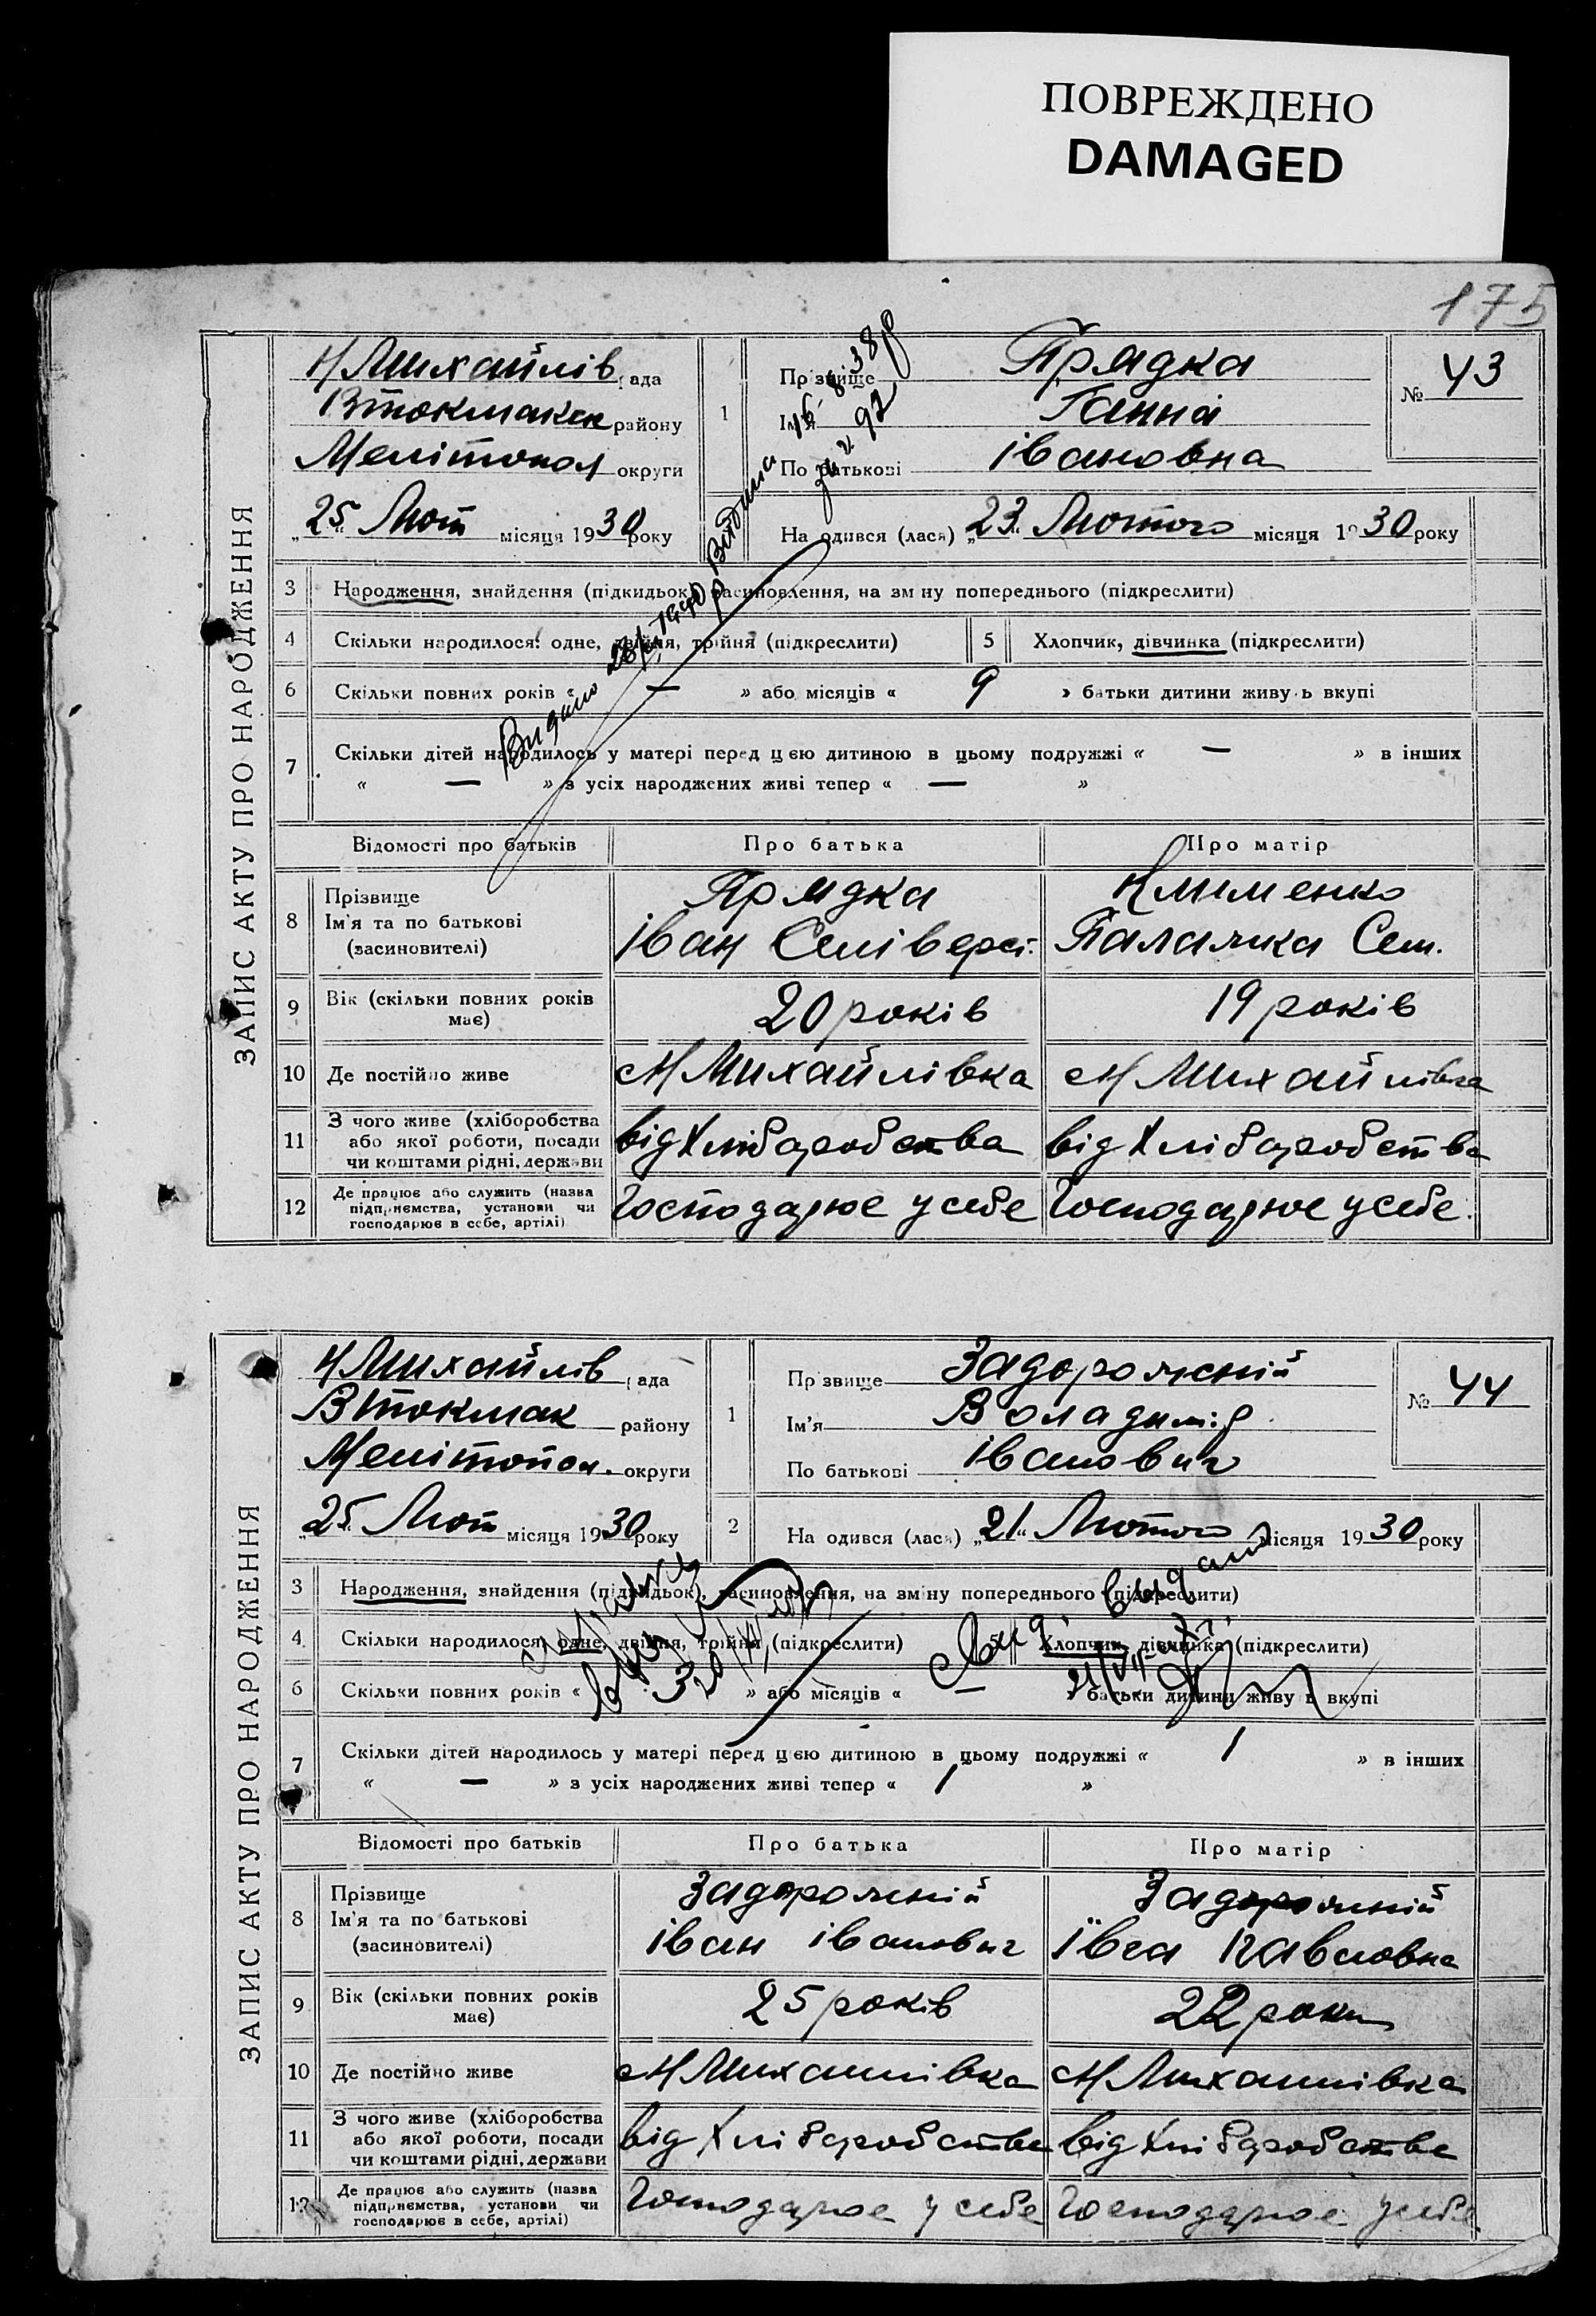 ПОВРЕЖДЕНО
DAMAGED
175
ЗАПИС АКТУ ПРО НАРОДЖЕННЯ
Н Михайлів рада
Втокмакск району
Мелітопол округи
„25“ Лют місяця 1930 року
1
Прізвище Прядка
Ім'я Ганна
По батькові івановна
№ 43
На одився (лася) „23“ Лютого місяця 1930 року
3 Народження, знайдення (підкидьок), засиновлення, на зміну попереднього (підкреслити)
4 Скільки народилося: одне, двійня, трійня (підкреслити)
5 Хлопчик, дівчинка (підкреслити)
6 Скільки повних років « — » або місяців « 9 » батьки дитини живуть вкупі
7 Скільки дітей народилось у матері перед цією дитиною в цьому подружжі « — » в інших
« — » з усіх народжених живі тепер « — »
Видано
Відомості про батьків
Про батька
Про матір
8 Прізвище
Ім'я та по батькові
(засиновителі)
Прядка
іван Селіверсі.
Клименко
Палажка Сем.
9 Вік (скільки повних років
має)
20 років
19 років
10 Де постійно живе
Н Михайлівка
Н Михайлівка
11 З чого живе (хліборобства
або якої роботи, посади
чи коштами рідні, держави
від Хліборобства
від Хліборобства
12 Де працює або служить (назва
підприємства, установи чи
господарює в себе, артілі)
Господарює у себе
Господарює у себе.
ЗАПИС АКТУ ПРО НАРОДЖЕННЯ
Н Михайлів рада
Втокмак району
Мелітопол. округи
„25“ Лют місяця 1930 року
1
Прізвище Задорожній
Ім'я Воладимір
По батькові іванович
№ 44
2
На одився (лася) „21“ Лютого місяця 1930 року
3 Народження, знайдення (підкидьок), засиновлення, на зміну попереднього (підкреслити)
4 Скільки народилося: одне, двійня, трійня (підкреслити)
5 Хлопчик, дівчинка (підкреслити)
6 Скільки повних років « » або місяців « — » батьки дитини живуть вкупі
7 Скільки дітей народилось у матері перед цією дитиною в цьому подружжі « 1 » в інших
« — » з усіх народжених живі тепер « 1 »
Відомості про батьків
Про батька
Про матір
8 Прізвище
Ім'я та по батькові
(засиновителі)
Задорожній
іван іванович
Задорожній
Ївга Павловна
9 Вік (скільки повних років
має)
25 років
22 роки
10 Де постійно живе
Н Михаилівка
Н Михаилівка
11 З чого живе (хліборобства
або якої роботи, посади
чи коштами рідні, держави
від Хліборобства
від Хліборобства
12 Де працює або служить (назва
підприємства, установи чи
господарює в себе, артілі)
Господарює у себе
Господарює у себе